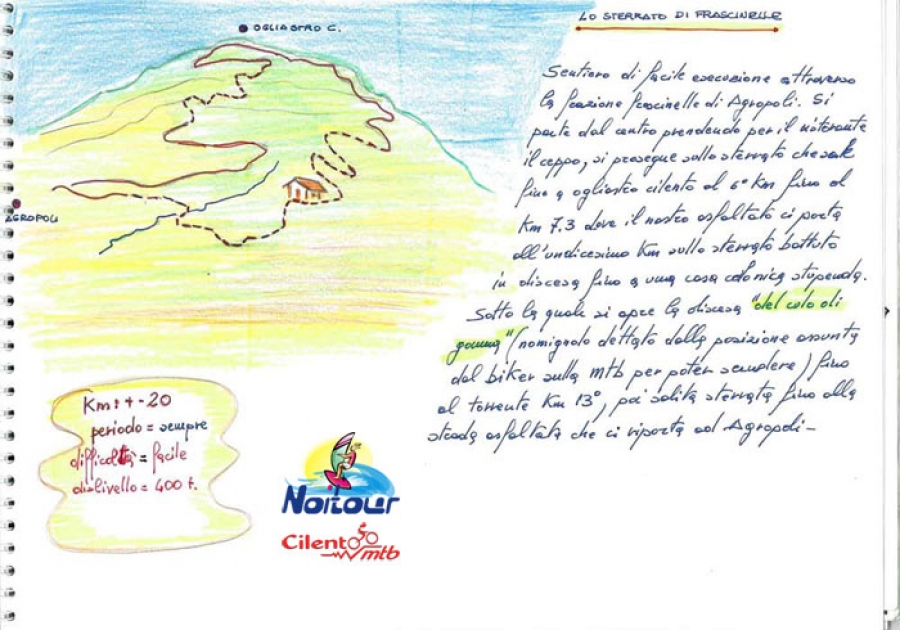 OGLIASTRO C.
AGROPOLI
LO STERRATO DI FRASCINELLE
Sentiero di facile esecuzione attraverso
la frazione frascinelle di Agropoli. Si
parte dal centro prendendo per il ristorante
il ceppo, si prosegue sullo sterrato che sale
fino a ogliastro cilento al 6° Km fino al
Km 7.3 dove il nostro asfaltato ci porta
all'undicesimo Km sullo sterrato battuto
in discesa fino a una casa colonica stupenda.
Sotto la quale si apre la discesa "del culo di
gomma" (nomignolo dettato dalla posizione assunta
dal biker sulla mtb per poter scendere) fino
al torrente Km 13°, poi salita sterrata fino alla
strada asfaltata che ci riporta ad Agropoli-
Km: + - 20
periodo = sempre
difficoltà = facile
dislivello = 400 t.
Noitour
Cilento
mtb